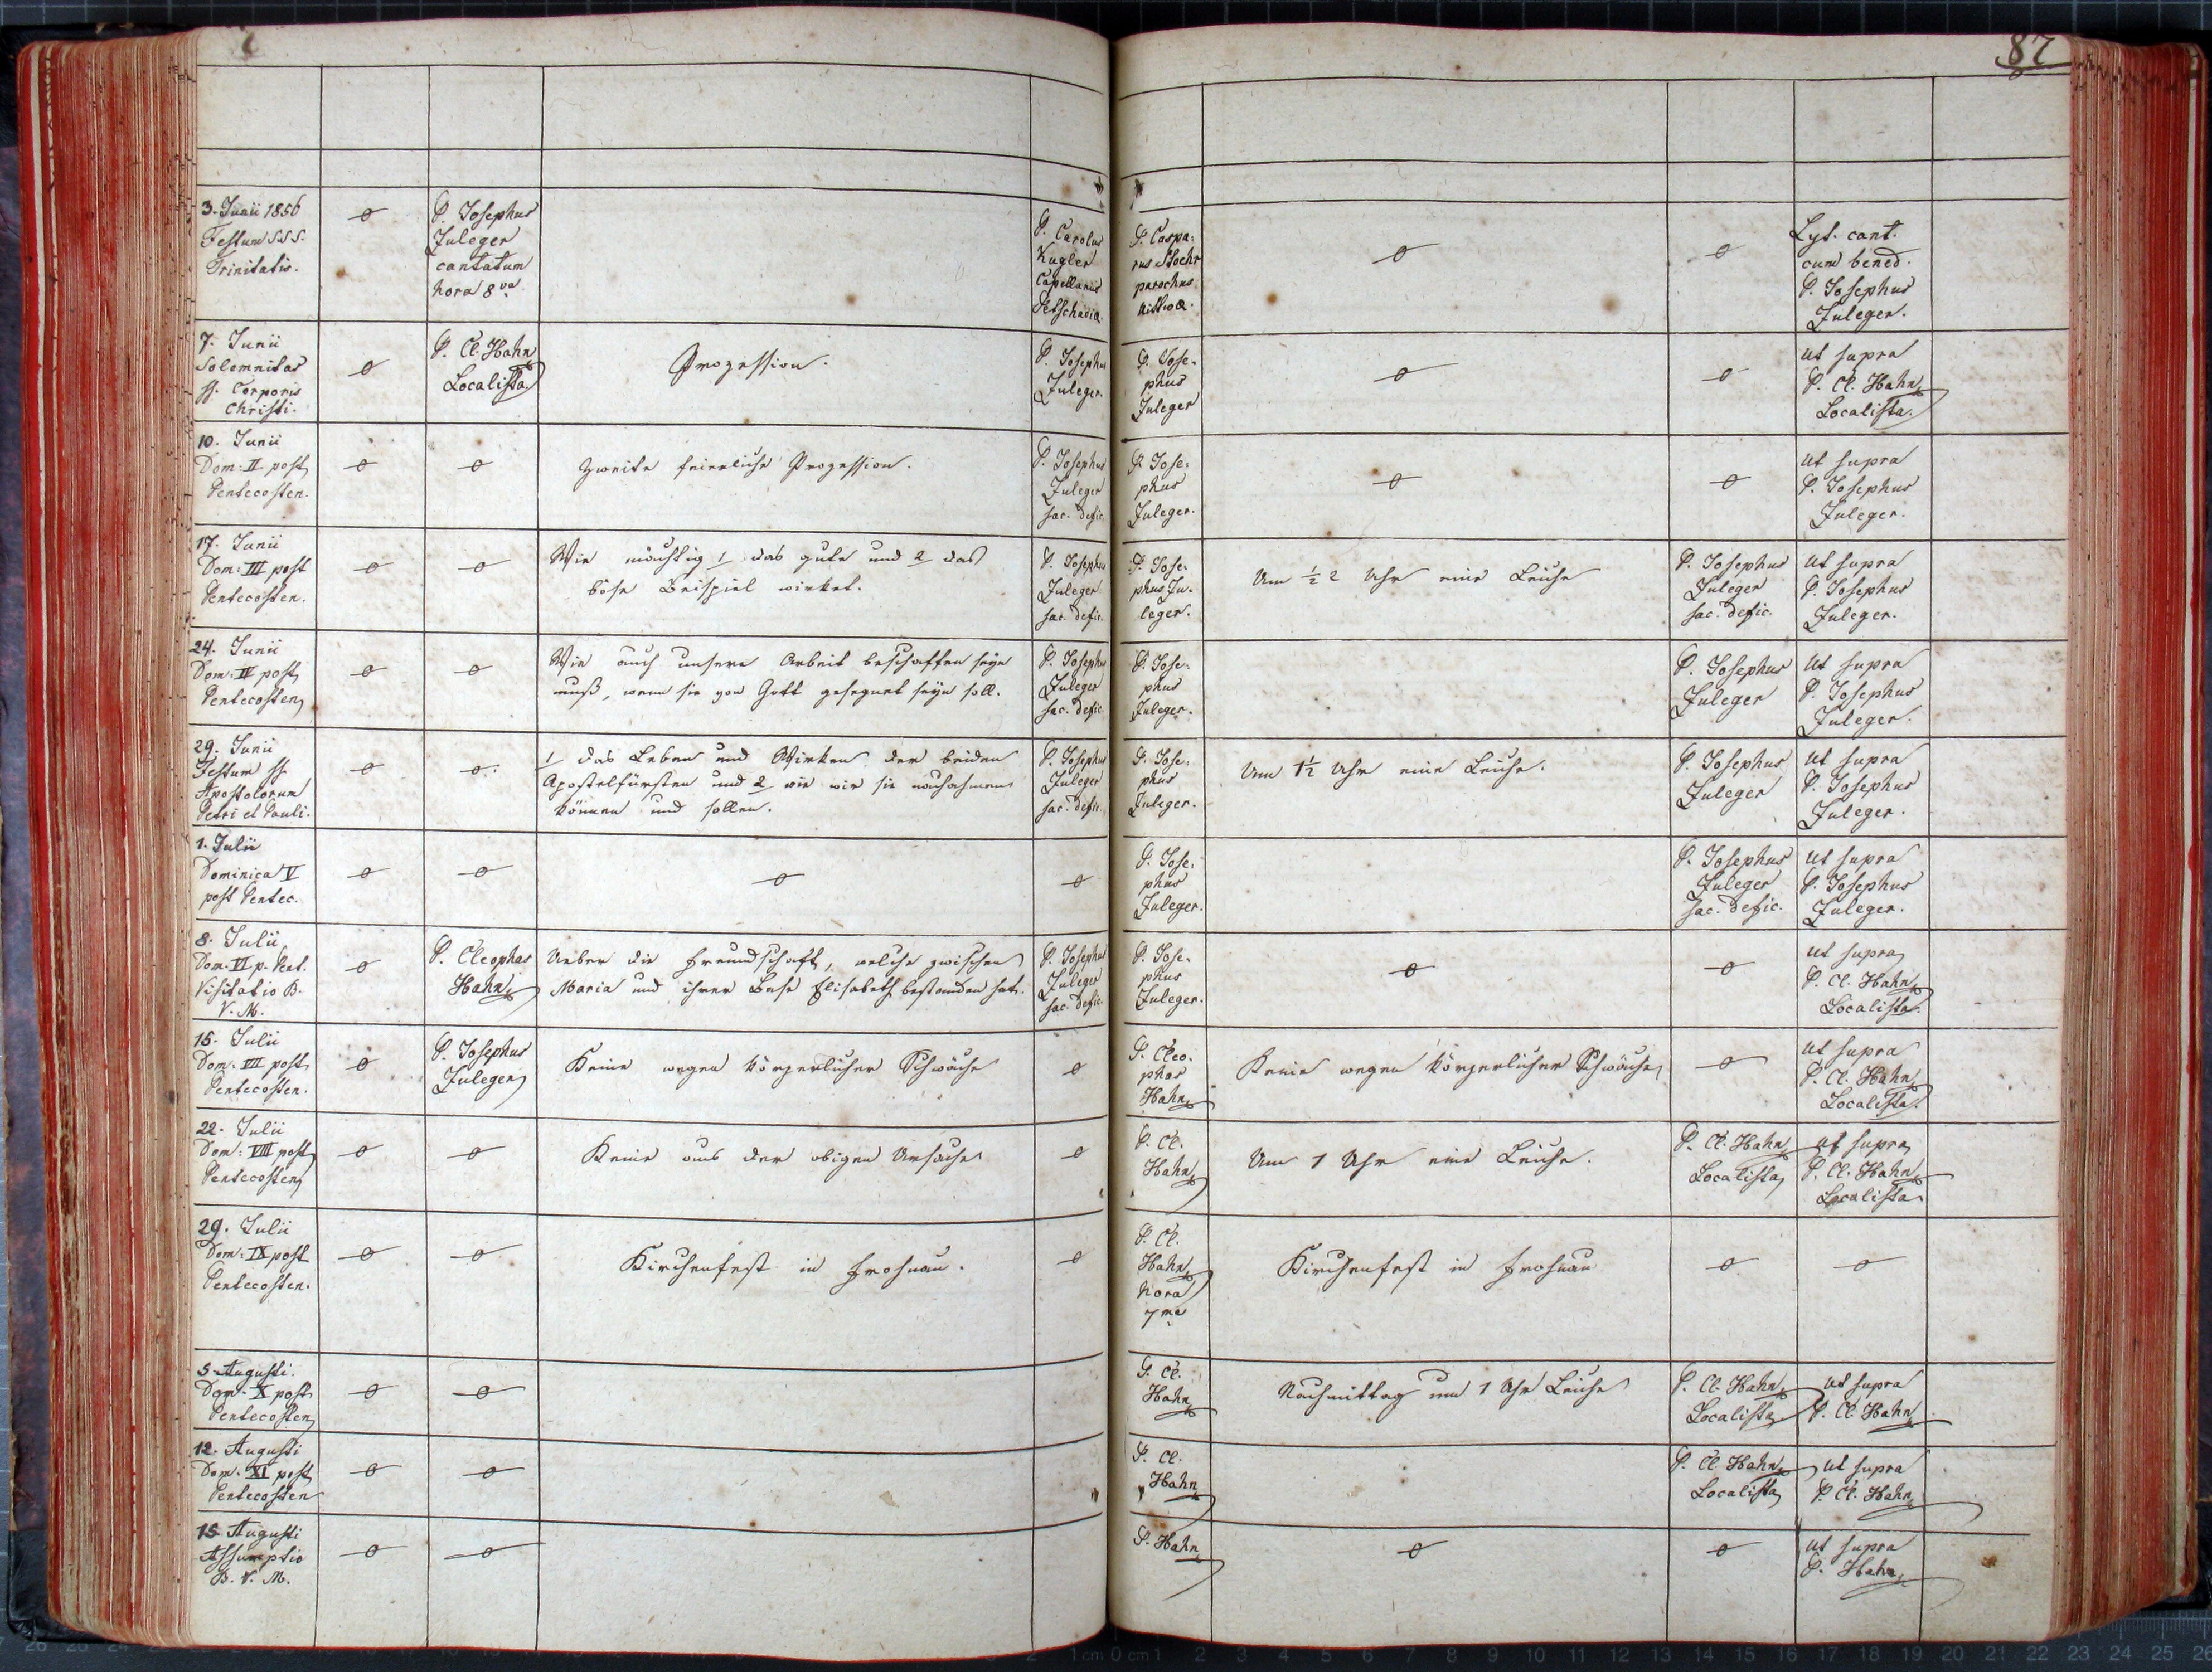 87
3. Junii 1856
Festum S.S.S.
Trinitatis.
P. Josephus
Juleger
cantatum
hora 8va
P. Carolus
Kugler
Capellanus
Petschaviae
P. Caspa-
rus Stöchr
parochus
Lyt. cant.
cum bened.
P. Josephus
Juleger.
7. Junii
Solemnitas
ss. Corporis
Christi.
P. Cl. Hahn
Localista
Prozession.
P. Josephus
Juleger.
P. Jose-
phus
Juleger
ut supra
P. Cl. Hahn
Localista.
10. Junii
Dom: II post
Pentecosten.
Zweite feierliche Prozession.
P. Josephus
Juleger
sac. defic.
P. Jose-
phus
Juleger.
ut supra
P. Josephus
Juleger.
17. Junii
Dom: III post
Pentecosten.
Wie mächtig 1 das gute und 2 das
böse Beispiel wirket.
P. Josephus
Juleger
sac. defic.
P. Jose-
phus Ju-
leger.
Um ½ 2 Uhr eine Leiche
P. Josephus
Juleger
sac. defic.
ut supra
P. Josephus
Juleger.
24. Junii
Dom: IV post
Pentecosten
Wie auch unsere Arbeit beschaffen seyn
muß, wenn sie von Gott gesegnet seyn soll.
P. Josephus
Juleger
sac. defic.
P. Jose-
phus
Juleger.
P. Josephus
Juleger
ut supra
P. Josephus
Juleger.
29. Junii
Festum ss.
Apostolorum
Petri et Pauli.
1 das Leben und Wirken der beiden
Apostelfürsten und 2 wie wir sie nachahmen
können und sollen.
P. Josephus
Juleger
sac. defic.
P. Jose-
phus
Juleger.
Um 1½ Uhr eine Leiche.
P. Josephus
Juleger
ut supra
P. Josephus
Juleger.
1. Julii
Dominica V
post Pentec.
P. Jose-
phus
Juleger.
P. Josephus
Juleger
sac. defic.
ut supra
P. Josephus
Juleger.
8. Julii
Dom. VI p. Pent.
Visitatio B.
V. M.
P. Cleophas
Hahn
Ueber die Freundschaft, welche zwischen
Maria und ihrer Base Elisabeth bestanden hat.
P. Josephus
Juleger
sac. defic.
P. Jose-
phus
Juleger.
ut supra
P. Cl. Hahn
Localista.
15. Julii
Dom. VII post
Pentecosten.
P. Josephus
Juleger
Keine wegen körperlicher Schwäche
P. Cleo-
phas
Hahn
Keine wegen körperlicher Schwäche
ut supra
P. Cl. Hahn
Localista.
22. Julii
Dom: VIII post
Pentecosten
Keine aus der obigen Ursache
P. Cl.
Hahn
Um 1 Uhr eine Leiche.
P. Cl. Hahn
Localista
ut supra
P. Cl. Hahn
Localista
29. Julii
Dom: IX post
Pentecosten.
Kirchenfest in Frohnau.
P. Cl.
Hahn
hora
7ma
Kirchenfest in Frohnau
5 Augusti.
Dom. X post
Pentecosten
P. Cl.
Hahn
Nachmittag um 1 Uhr Leiche
P. Cl. Hahn
Localista
ut supra
P. Cl. Hahn
12. Augusti
Dom. XI post
Pentecosten
P. Cl.
Hahn
P. Cl. Hahn
Localista
ut supra
P. Cl. Hahn
15 Augusti
Assumptio
B. V. M.
P. Hahn
ut supra
P. Hahn